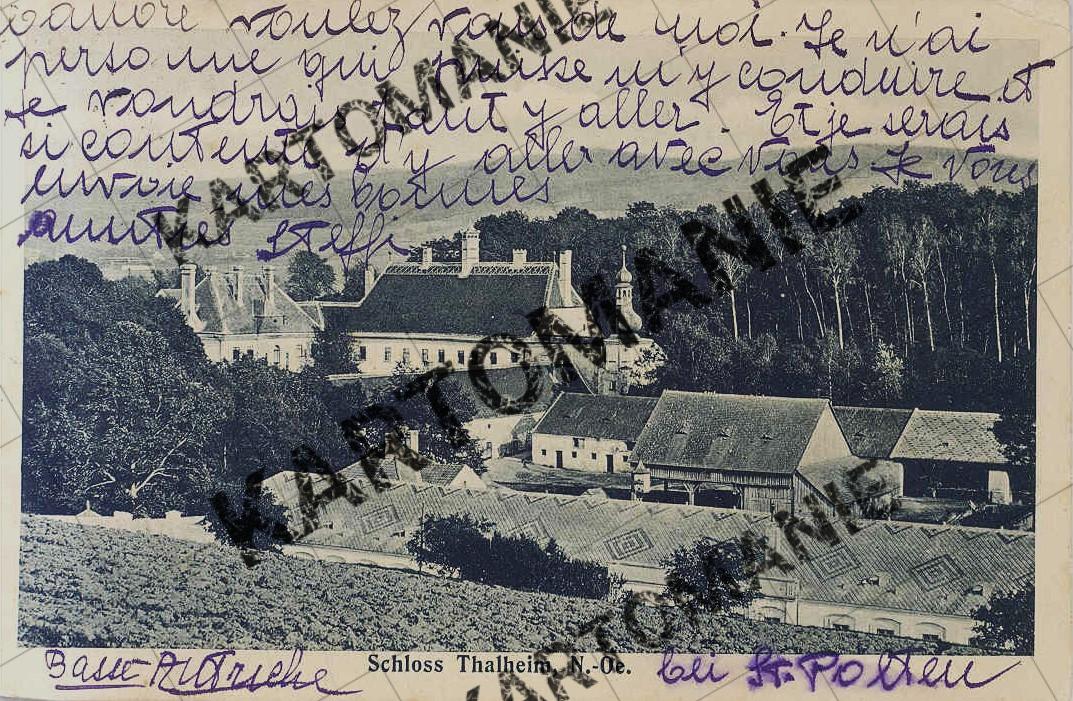 voulez vous de moi. Je n'ai
personne qui puisse m'y conduire et
je voudrais tant y aller. Et je serais
si contente d'y aller avec vous Je vous
envoie mes bonnes
amitiés Steffi
KARTOMANIE
KARTOMANIE
KARTOMANIE
KARTOMANIE
Basse-Autriche
Schloss Thalheim, N.-Oe.
bei St. Polten